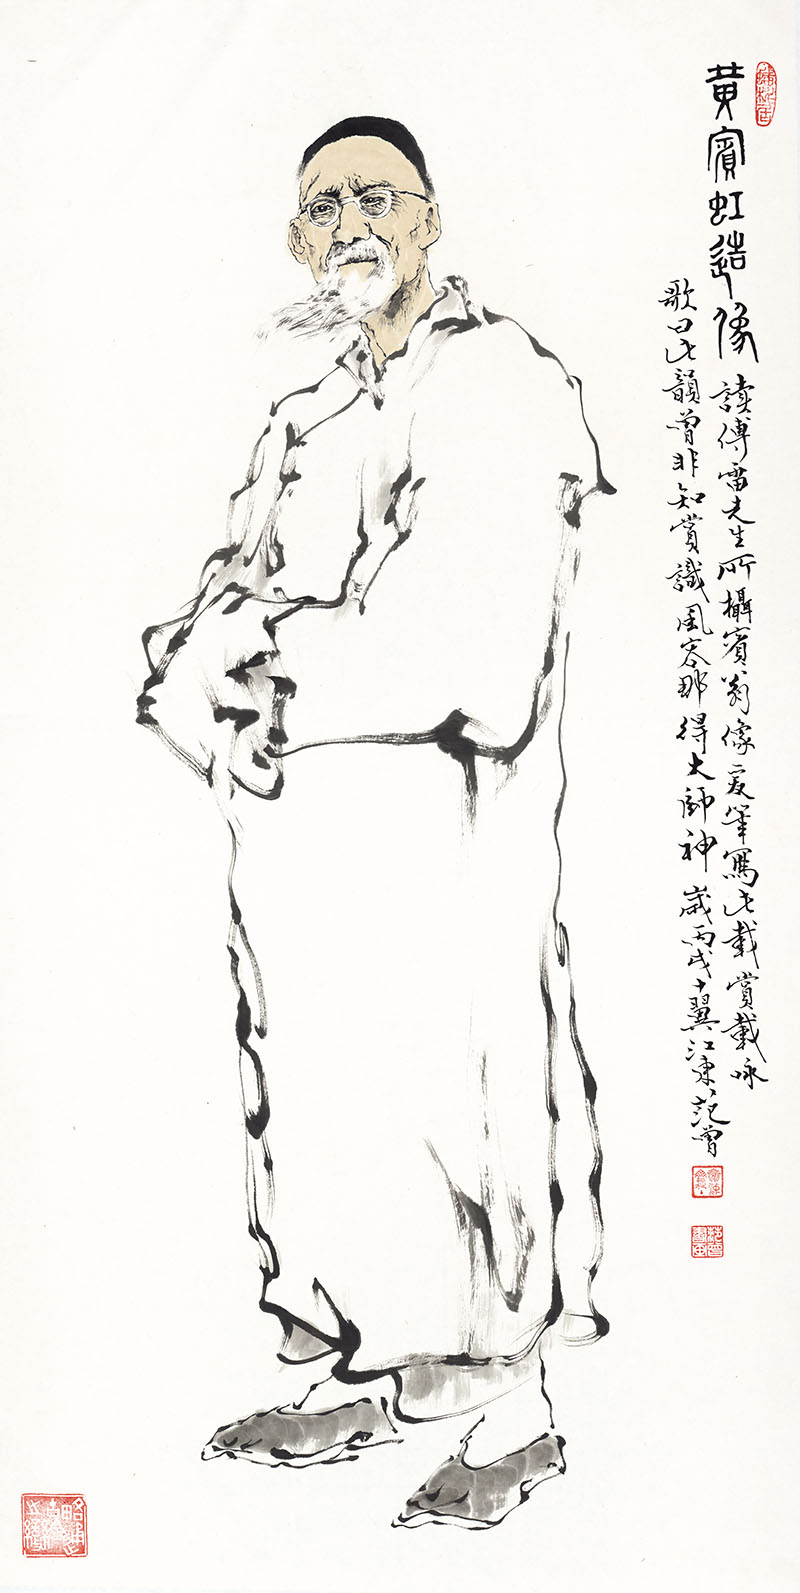 黄賓虹造像
讀傅雷先生所攝賓翁像爰筆寫此載賞載咏
歌曰此韻曾非知賞識風容那得大師神 歲丙戌十翼江東范曾